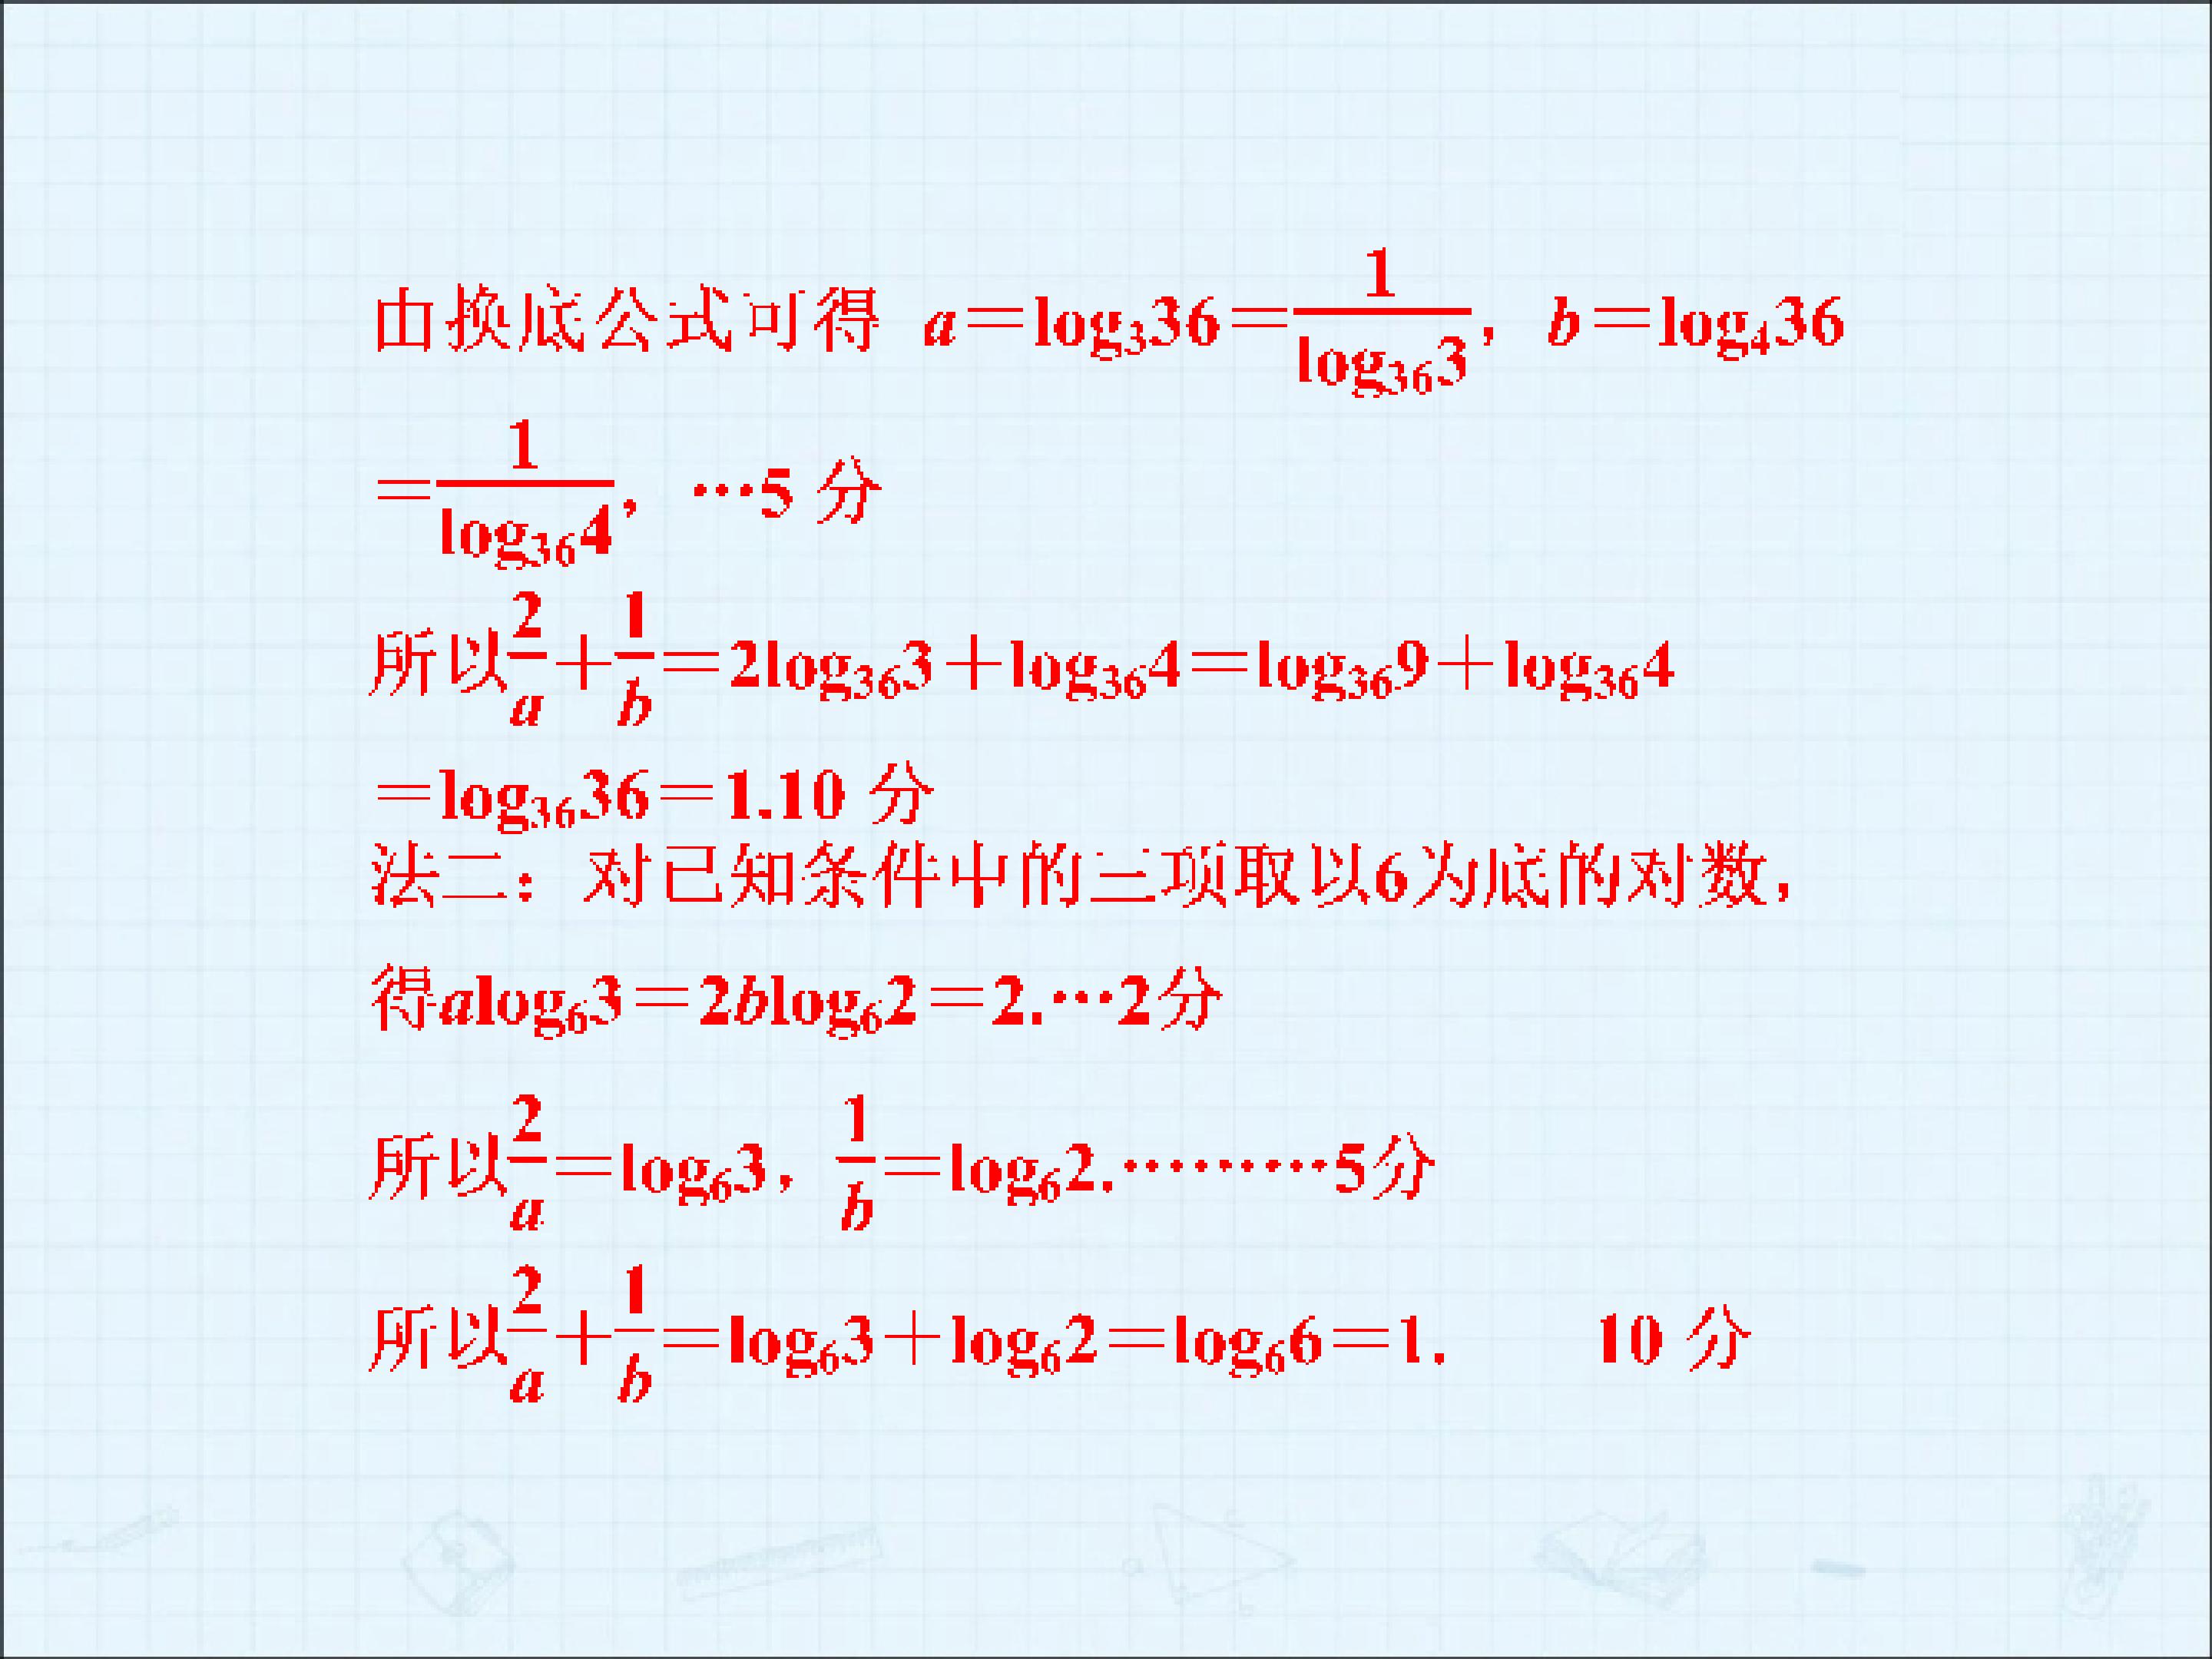 由换底公式可得 a=log₃36=1/log₃₆3，b=log₄36
=1/log₃₆4，…5 分
所以2/a+1/b=2log₃₆3+log₃₆4=log₃₆9+log₃₆4
=log₃₆36=1.10 分
法二：对已知条件中的三项取以6为底的对数，
得alog₆3=2blog₆2=2.…2分
所以2/a=log₆3，1/b=log₆2.………5分
所以2/a+1/b=log₆3+log₆2=log₆6=1. 10 分